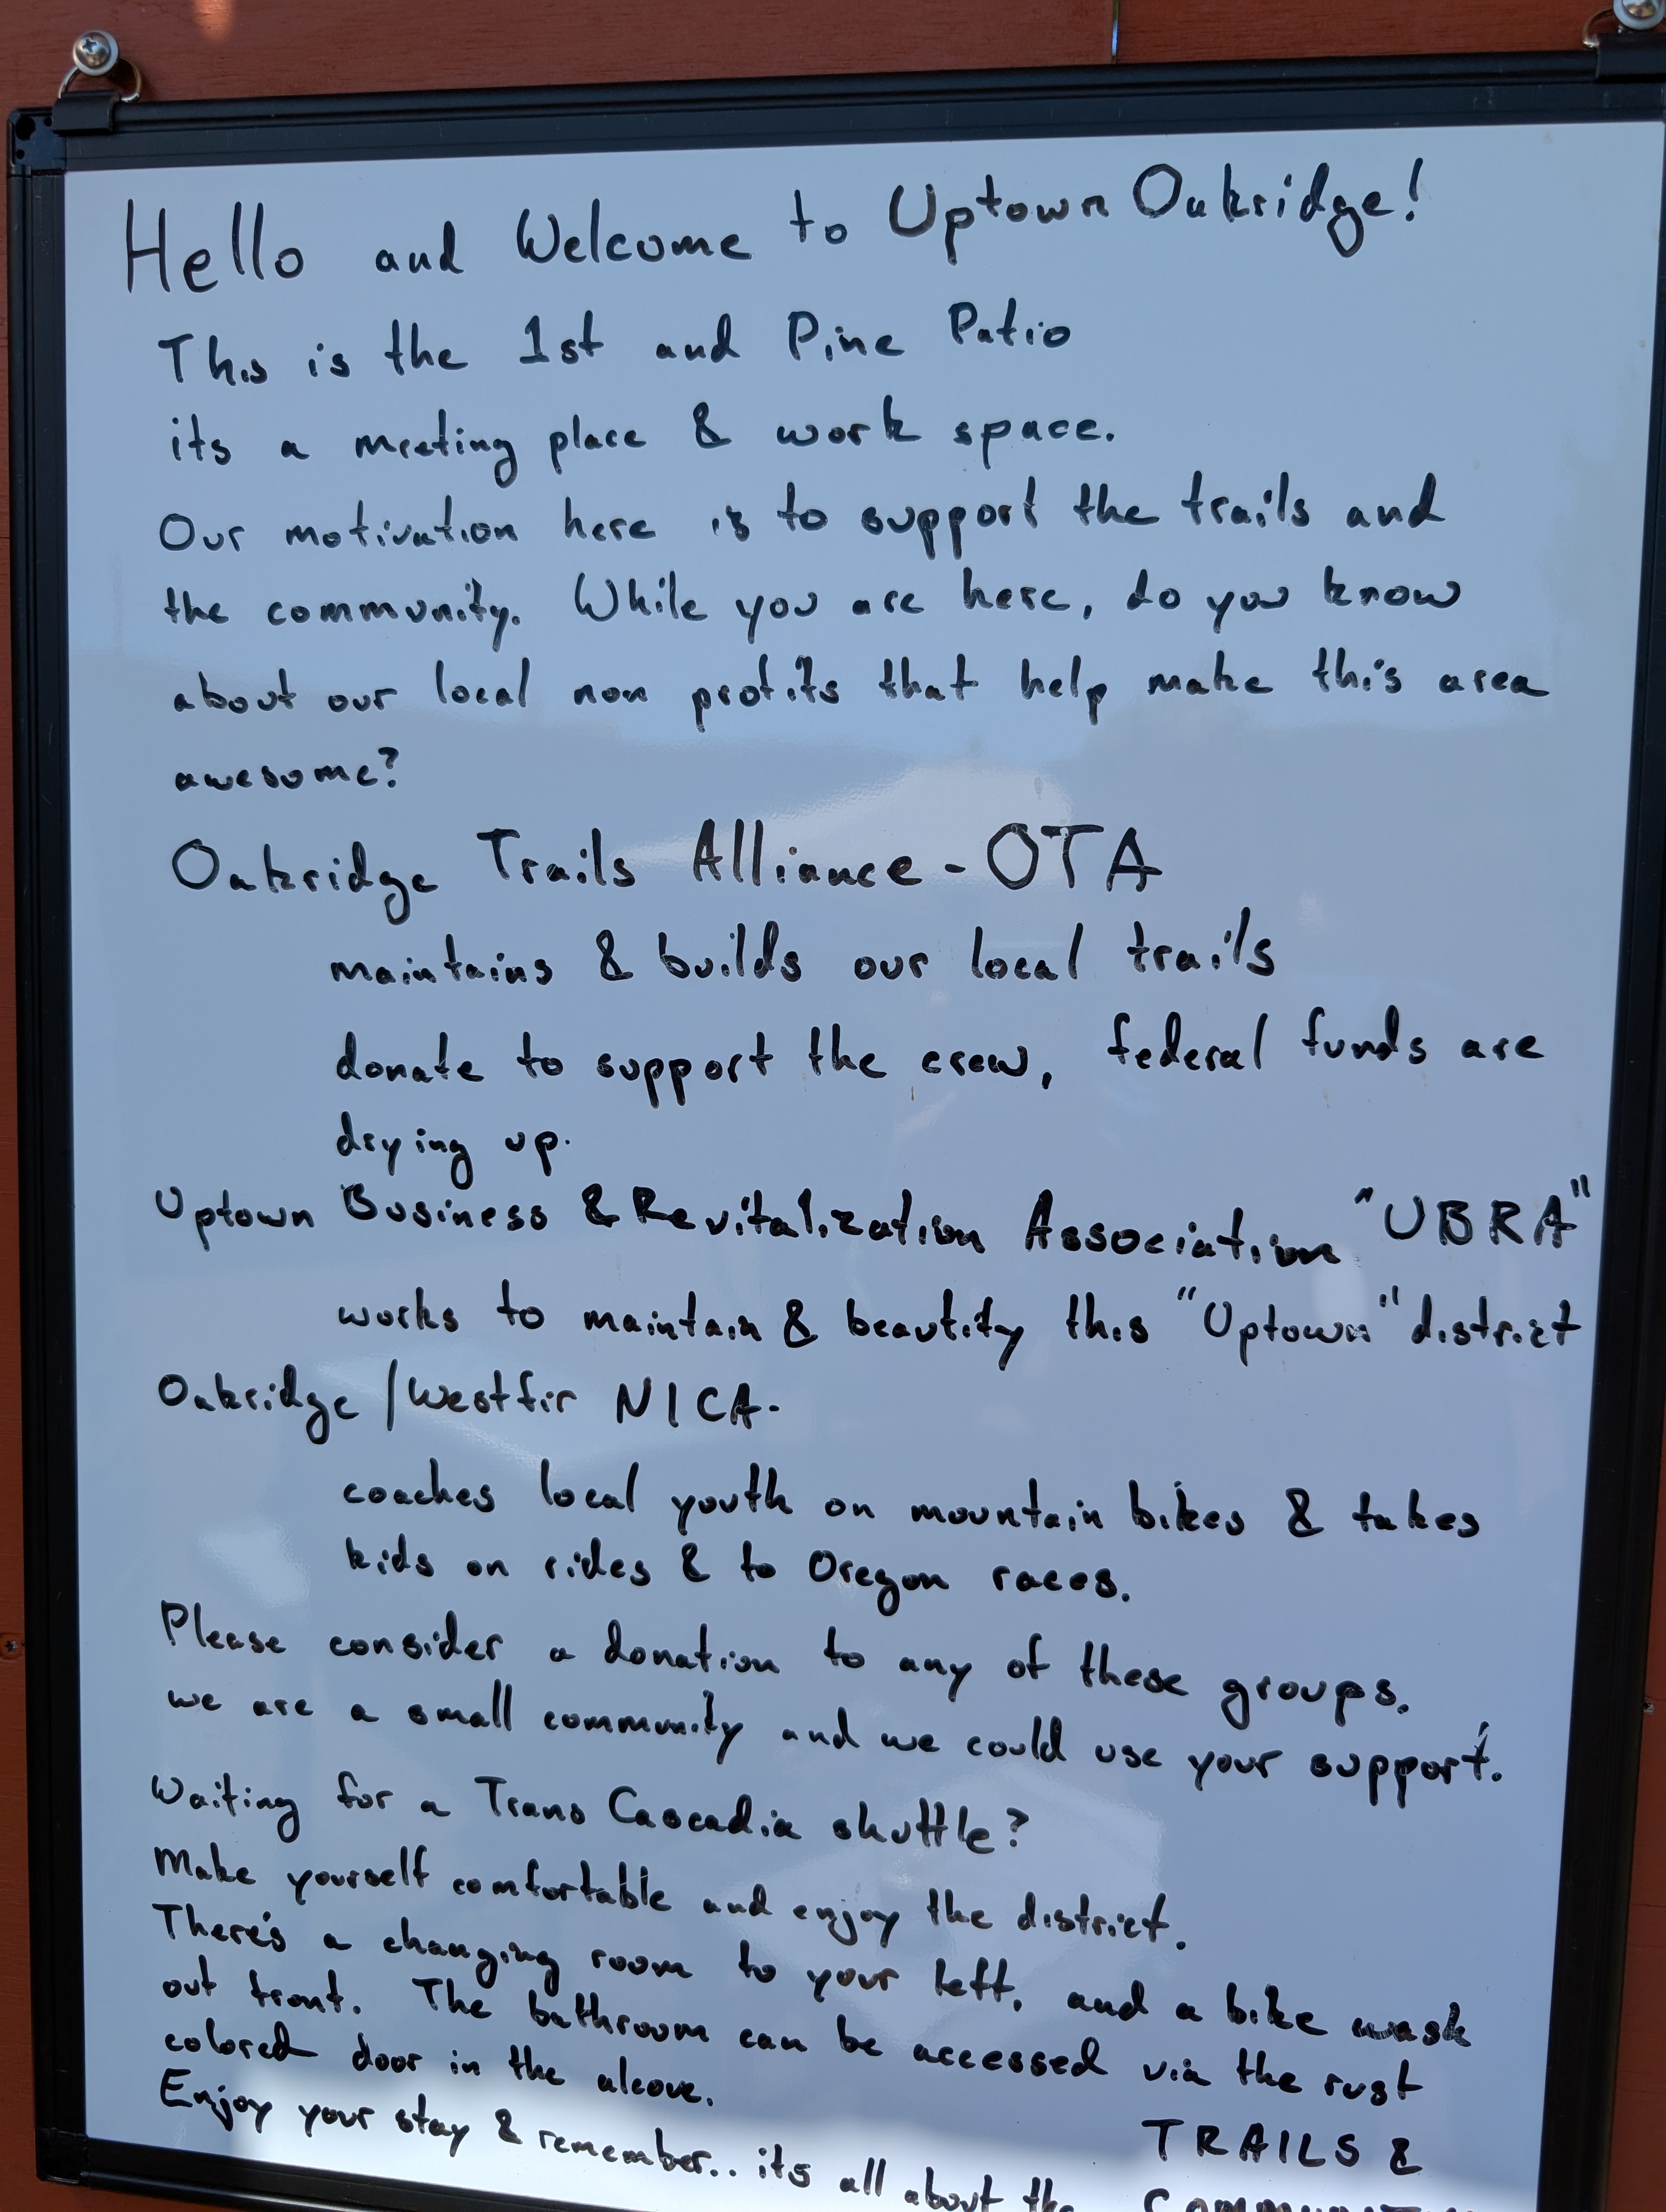 Hello and Welcome to Uptown Oakridge!
This is the 1st and Pine Patio
its a meeting place & work space.
Our motivation here is to support the trails and
the community. While you are here, do you know
about our local non profits that help make this area
awesome?
Oakridge Trails Alliance - OTA
maintains & builds our local trails
donate to support the crew, federal funds are
drying up.
Uptown Business & Revitalization Association "UBRA"
works to maintain & beautify this "Uptown" district
Oakridge/Westfir NICA-
coaches local youth on mountain bikes & takes
kids on rides & to Oregon races.
Please consider a donation to any of these groups.
we are a small community and we could use your support!
Waiting for a Trans Cascadia shuttle?
Make yourself comfortable and enjoy the district.
There's a changing room to your left, and a bike wash
out front. The bathroom can be accessed via the rust
colored door in the alcove.
Enjoy your stay & remember.. its all about the TRAILS &